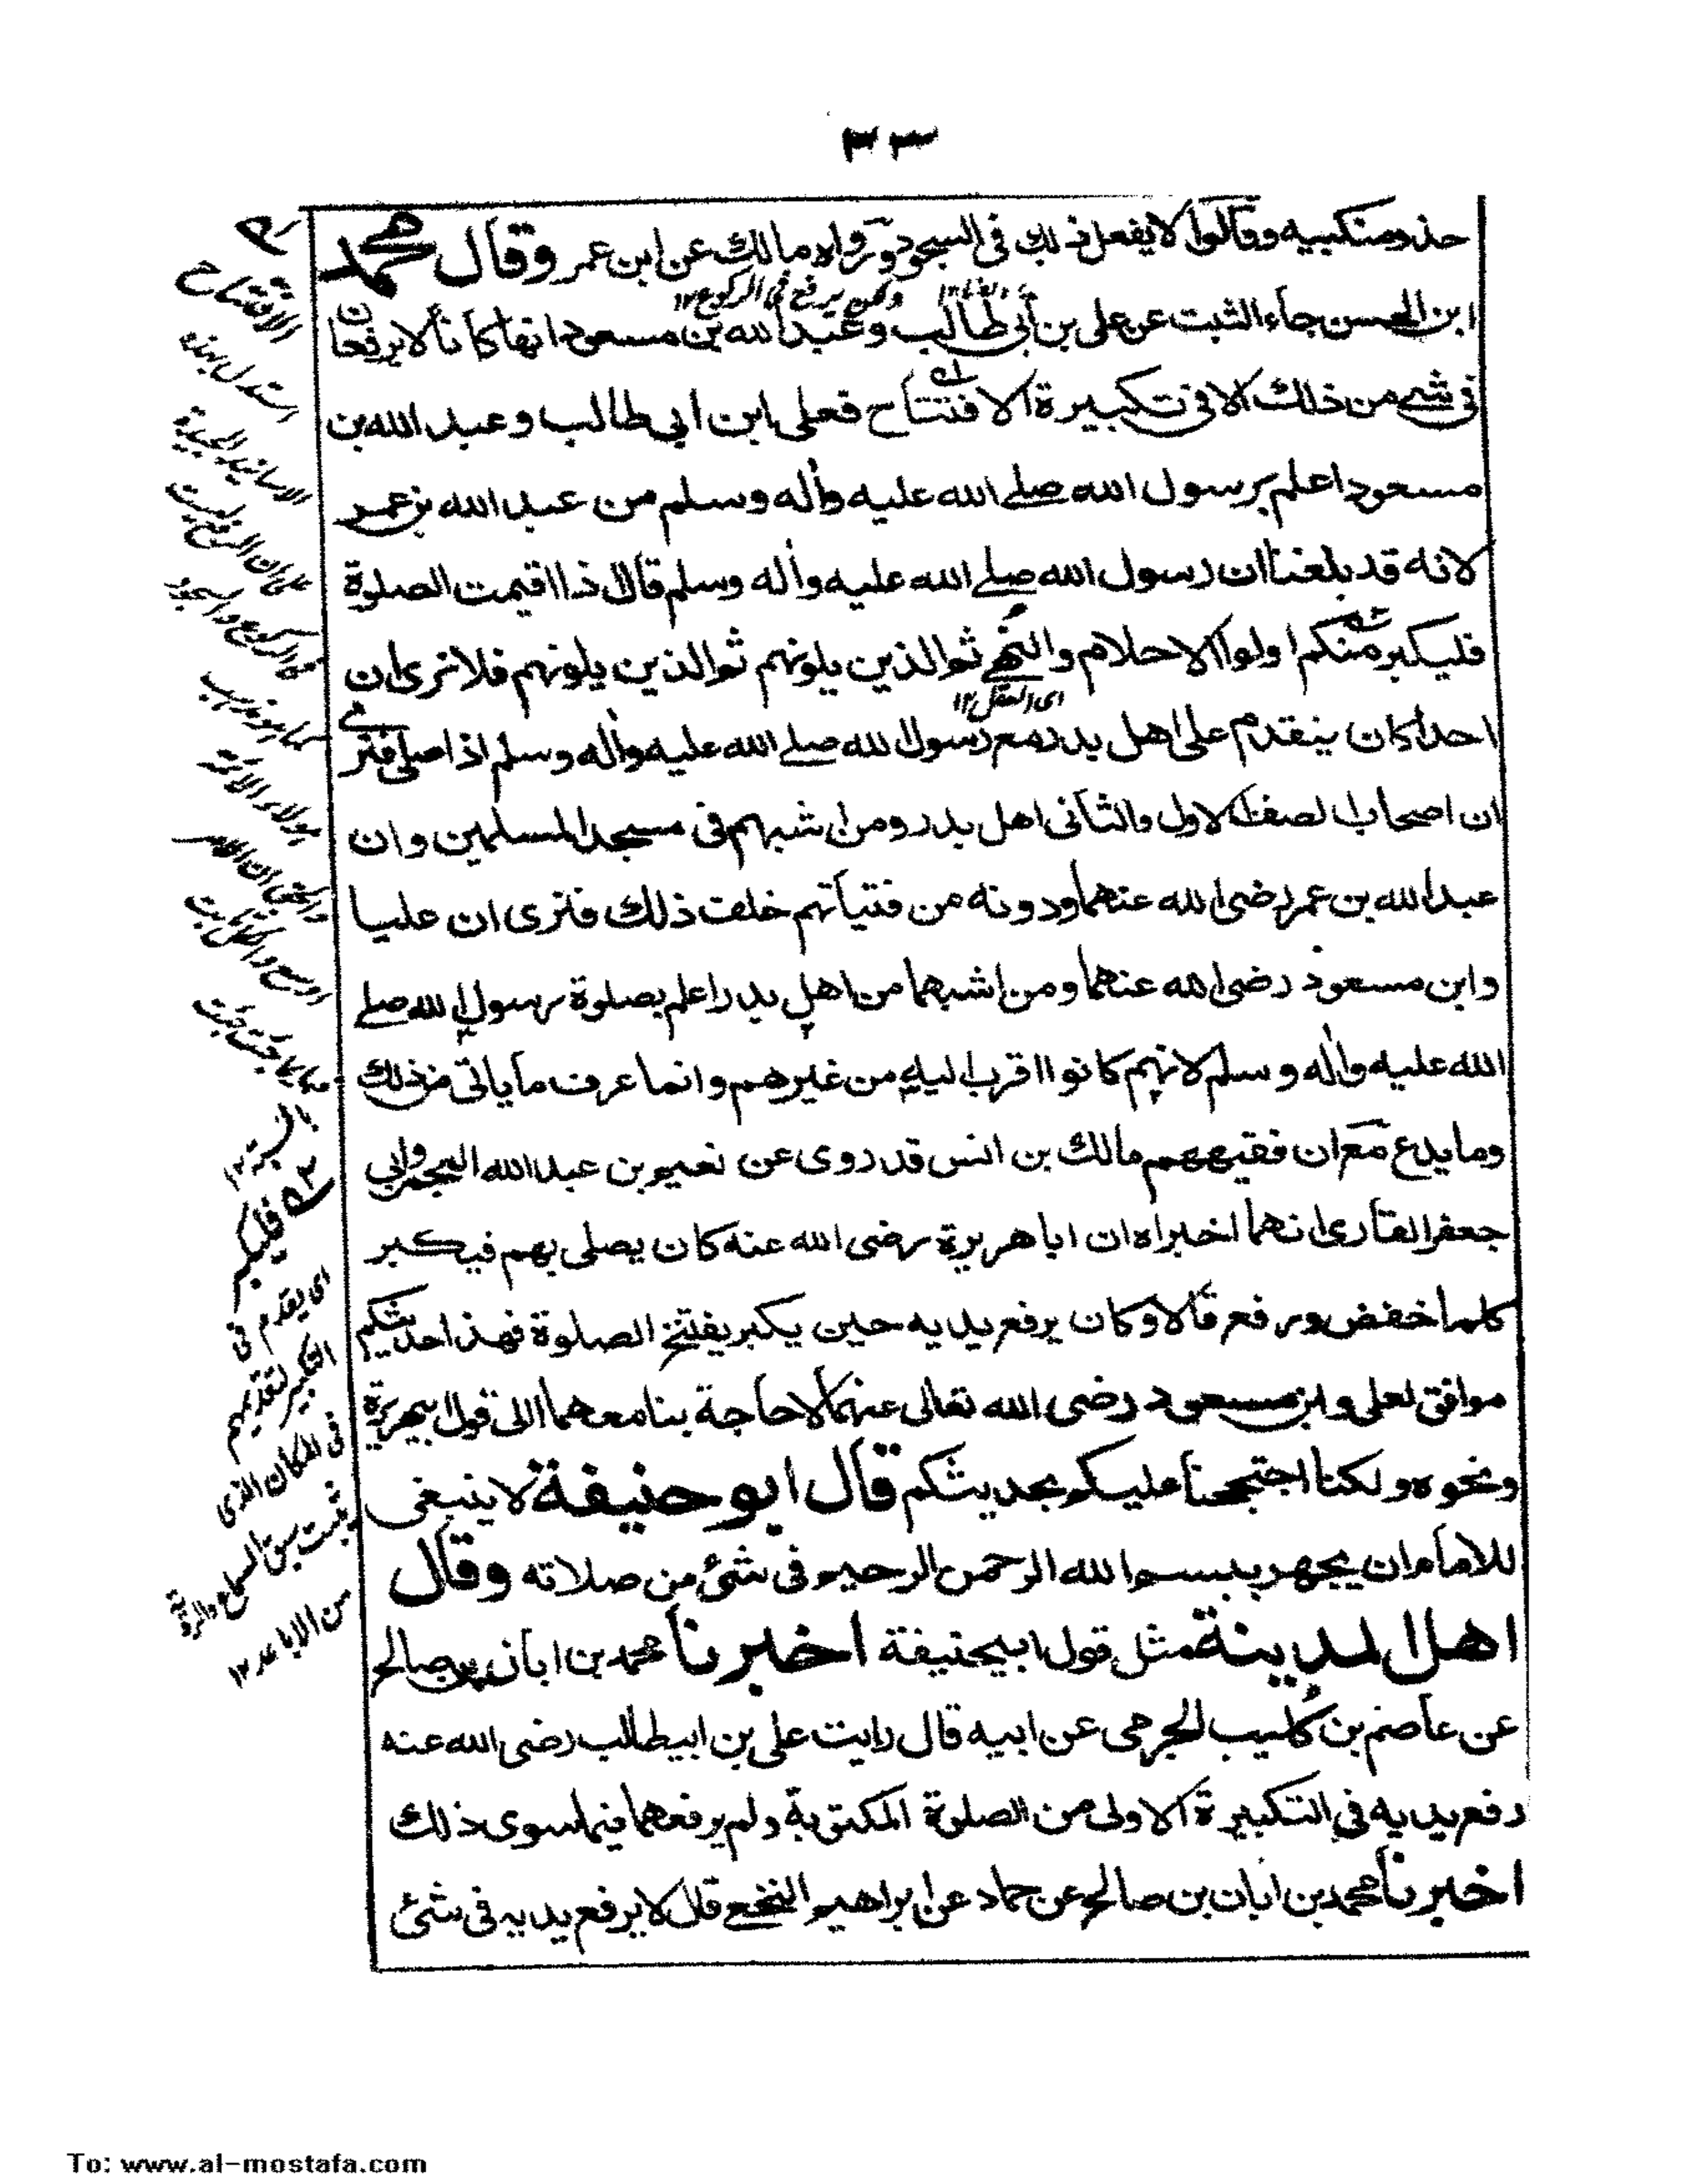 ٣٣
حذو منكبيه وقالوا لا يفعل ذلك فى السجود ورواه مالك عن ابن عمر وقال محمد
ولكن يرفع فى الركوع ١٢
ابن الحسن جاء الثبت عن على بن أبي طالب وعبد الله بن مسعود انهما كانا لا يرفعان
فى شئ من ذلك الا فى تكبيرة الافتتاح فعلى ابن ابي طالب وعبد الله بن
مسعود اعلم برسول الله صلے الله عليه واٰله وسلم من عبد الله بن عمر
لانه قد بلغنا ان رسول الله صلے الله عليه واٰله وسلم قال اذا اقيمت الصلوة
فليكبر منكم اولوا الاحلام والنُّهے ثم الذين يلونهم ثم الذين يلونهم فلا نرى ان
اى العقل ١٢
احدا كان يتقدم على اهل بدر مع رسول الله صلے الله عليه واٰله وسلم اذا صلى فنرے
ان اصحاب الصف الاول والثانى اهل بدر ومن اشبههم فى مسجد المسلمين وان
عبد الله بن عمر رضى الله عنهما ودونه من فتيانهم خلف ذلك فنرى ان عليا
وابن مسعود رضى الله عنهما ومن اشبههما من اهل بدر اعلم بصلوة رسول الله صلے
الله عليه واٰله وسلم لانهم كانوا اقرب اليه من غيرهم وانما عرف ما ياتى من ذلك
وما يدع مع ان فقيههم مالك بن انس قد روى عن نعيم بن عبد الله المجمر وابى
جعفر القارى انهما اخبراه ان ابا هريرة رضى الله عنه كان يصلى بهم فيكبر
كلما خفض ورفع قالا وكان يرفع يديه حين يكبر يفتتح الصلوة فهذا حديثكم
موافق لعلى وابن مسعود رضى الله تعالى عنهما لا حاجة بنا معهما الى قول ابيهريرة
ونحوه ولكنا احتججنا عليكم بحديثكم قال ابو حنيفة لا ينبغى
للامام ان يجهر ببسم الله الرحمن الرحيم فى شئ من صلاته وقال
اهل المدينة مثل قول ابيحنيفة اخبرنا محمد بن ابان بن صالح
عن عاصم بن كُليب الجرمى عن ابيه قال رايت على بن ابيطالب رضى الله عنه
رفع يديه فى التكبيرة الاولى من الصلوة المكتوبة ولم يرفعهما فيما سوى ذلك
اخبرنا محمد بن ابان بن صالح عن حماد عن ابراهيم النخعے قال لا يرفع يديه فى شئ
الافتتاح
استدل بهذه
الاسانيد الجيدة
على ان الرفع ليست
فى الركوع والسجود
هؤلاء الائمة
فليكبر
اى يقدم فى
التكبير لتقدمهم
فى المكان الذى
من الاباعد ١٢
To: www.al-mostafa.com